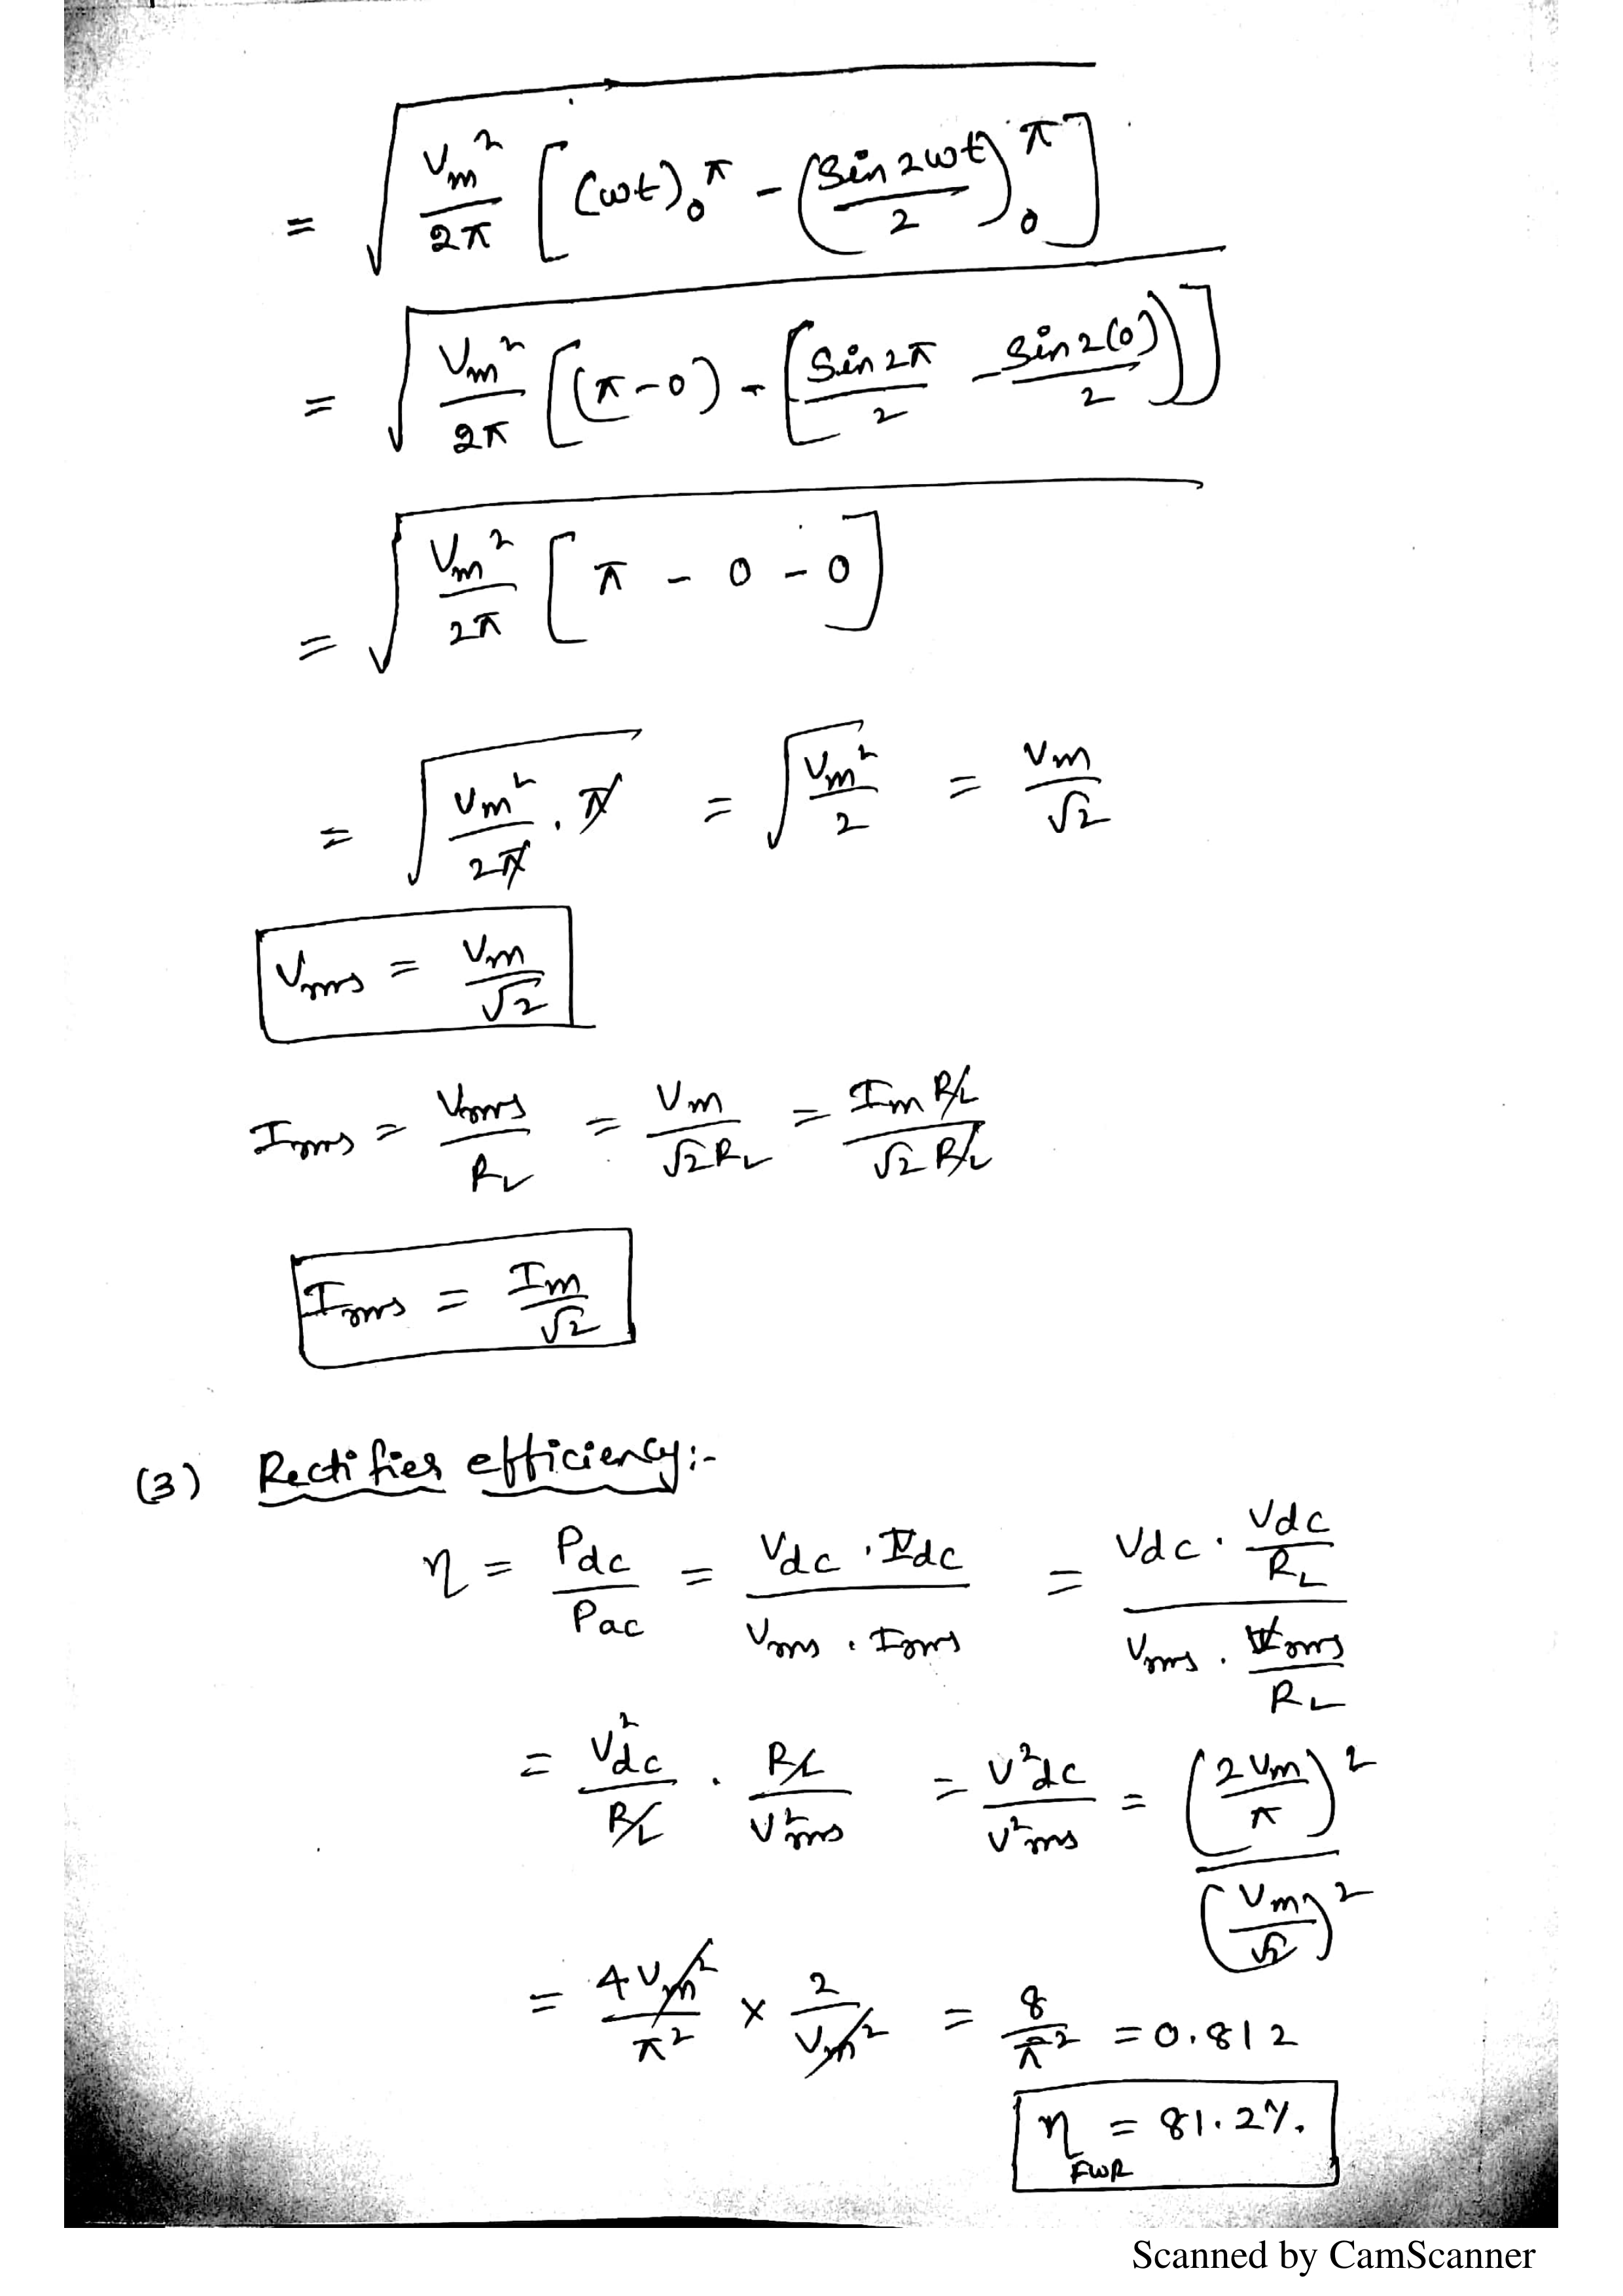 = √(Vm²/2π [(ωt)₀^π - (Sin 2ωt/2)₀^π])
= √(Vm²/2π [(π-0) - [Sin 2π/2 - Sin 2(0)/2)]])
= √(Vm²/2π [π - 0 - 0])
= √(Vm²/2π · π) = √(Vm²/2) = Vm/√2
Vrms = Vm/√2
Irms = Vrms/RL = Vm/√2 RL = Im RL/√2 RL
Irms = Im/√2
(3) Rectifier efficiency:-
η = Pdc/Pac = Vdc · Idc/Vrms · Irms = (Vdc · Vdc/RL)/(Vrms · Vrms/RL)
= V²dc/RL · RL/V²rms = V²dc/V²rms = (2Vm/π)²/(Vm/√2)²
= 4Vm²/π² × 2/Vm² = 8/π² = 0.812
η FWR = 81.2%.
Scanned by CamScanner